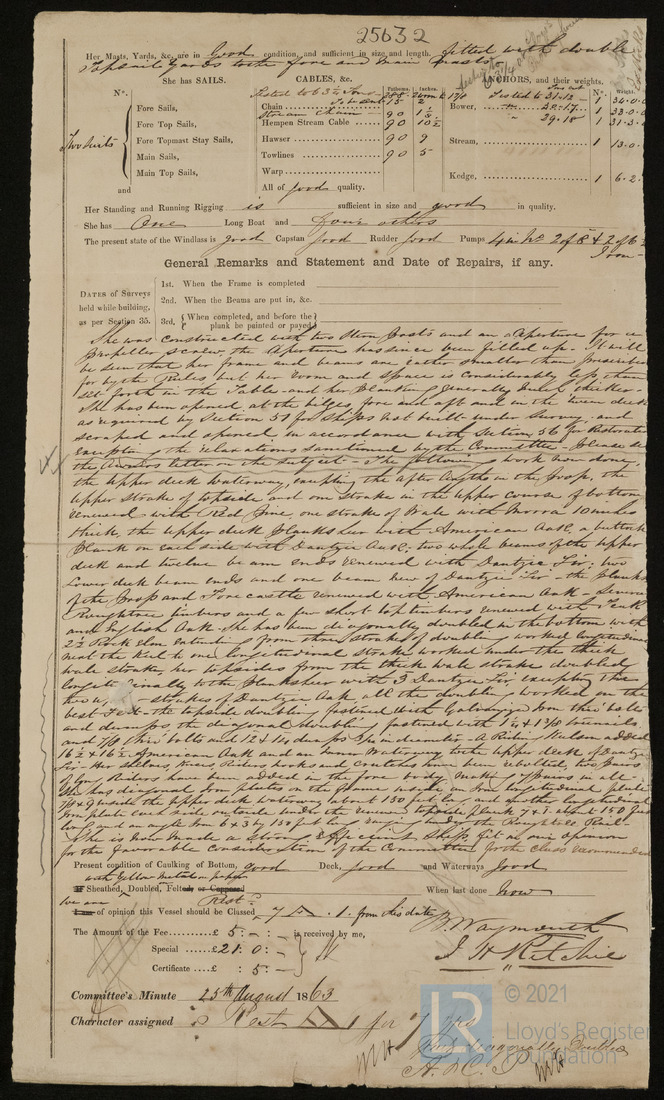 25632
Her Masts, Yards, &c., are in Good condition, and sufficient in size and length. fitted with double
Topsail Yards to the fore and main masts
She has SAILS.
CABLES, &c.
Fathoms.
Inches.
ANCHORS, and their weights.
Nº.
Weight.
Two Suits
Fore Sails,
Fore Top Sails,
Fore Topmast Stay Sails,
Main Sails,
Main Top Sails,
and
Tested to 63½ Tons
Chain
Stream Chain 90
Hempen Stream Cable 90 10½
Hawser 90 9
Towlines 90 5
Warp
All of good quality.
Bower, 1 34.0.0
1 33.0.0
29.18 1
Stream, 1 13.0.
Kedge, 1 6.2.
Her Standing and Running Rigging is sufficient in size and good in quality.
She has One Long Boat and four others
The present state of the Windlass is good Capstan good Rudder good Pumps
General Remarks and Statement and Date of Repairs, if any.
DATES of Surveys
held while building,
as per Section 35.
1st. When the Frame is completed
2nd. When the Beams are put in, &c.
3rd. When completed, and before the
plank be painted or payed
She was constructed with two Stern posts and an Aperture for a
propeller screw, the Aperture has since been filled up. It will
be seen that her frame and beams are rather smaller than prescribed
for by the Rules but her room and space is Considerably less than
set forth in the Table and her Planking generally much thicker.
She has been opened at the bilges fore and aft and in the tween decks
as required by Section 57 for Ships not built under Survey, and
scraped and opened in accordance with Section 56 for Restoration
excepting the relaxations sanctioned by the Committee please see
the Owners letter on the subject. The following work now done,
the upper deck Waterway, excepting the after lengths in the poop, the
upper strake of topside and one strake in the upper course of bottom
renewed with Red Pine, one strake of Wale with Morra 10 inches
thick, the upper deck planksheer with American Oak, a buttock
plank on each side with Dantzic Oak, two whole beams of the upper
deck and twelve beam ends renewed with Dantzic Fir, two
lower deck beam ends and one beam new of Dantzic Fir the planks
of the Poop and Forecastle renewed with American Oak Several
Roughtree timbers and a few short top timbers renewed with Teak
and English Oak. She has been diagonally doubled in the bottom with
2½ Rock Elm extending from three strakes of doubling worked longitudinally
next the keel to one longitudinal strake worked under the thick
wale strake, her topsides from the thick wale strake doubled
longitudinally to the Planksheer with 3 Dantzic Fir excepting the
two strakes of Dantzic Oak, all the doubling worked on the
best Felt the topside doubling fastened with Galvanized Iron
the diagonal doubling fastened with treenails,
A Riding Kulson added
16½ x 16½ of American Oak and an inner Waterway to the Upper deck of Dantzic
Fir Her Shelves, Knees, Riders, hooks and Crutches have been rebolted, two pairs
of Riders have been added in the fore body making 7 pairs in all.
She has diagonal Iron plates on the frame inside, an Iron longitudinal plate
inside the upper deck waterway about 130 feet long and another longitudinal
Iron plate each side outside under the
She is now made a strong & efficient Ship fit in our opinion
for the favorable Consideration of the Committee for the Class recommended
Present condition of Caulking of Bottom, good Deck, good and Waterways good
with Yellow Metal on paper
If Sheathed, Doubled, Felted, or Coppered When last done Now
We are Rest.
I am of opinion this Vessel should be Classed 7 A.1. from this date
The Amount of the Fee......£ 5: - : - is received by me,
Special ......£21: 0: -
Certificate ....£ : 5: -
B. Waymouth
J H Ritchie
Committee's Minute 25th August 1863
Character assigned Rest A 1 for 7 yrs
Diagonally Doubled
A. & C. P.
© 2021
LR
Lloyd's Register
Foundation